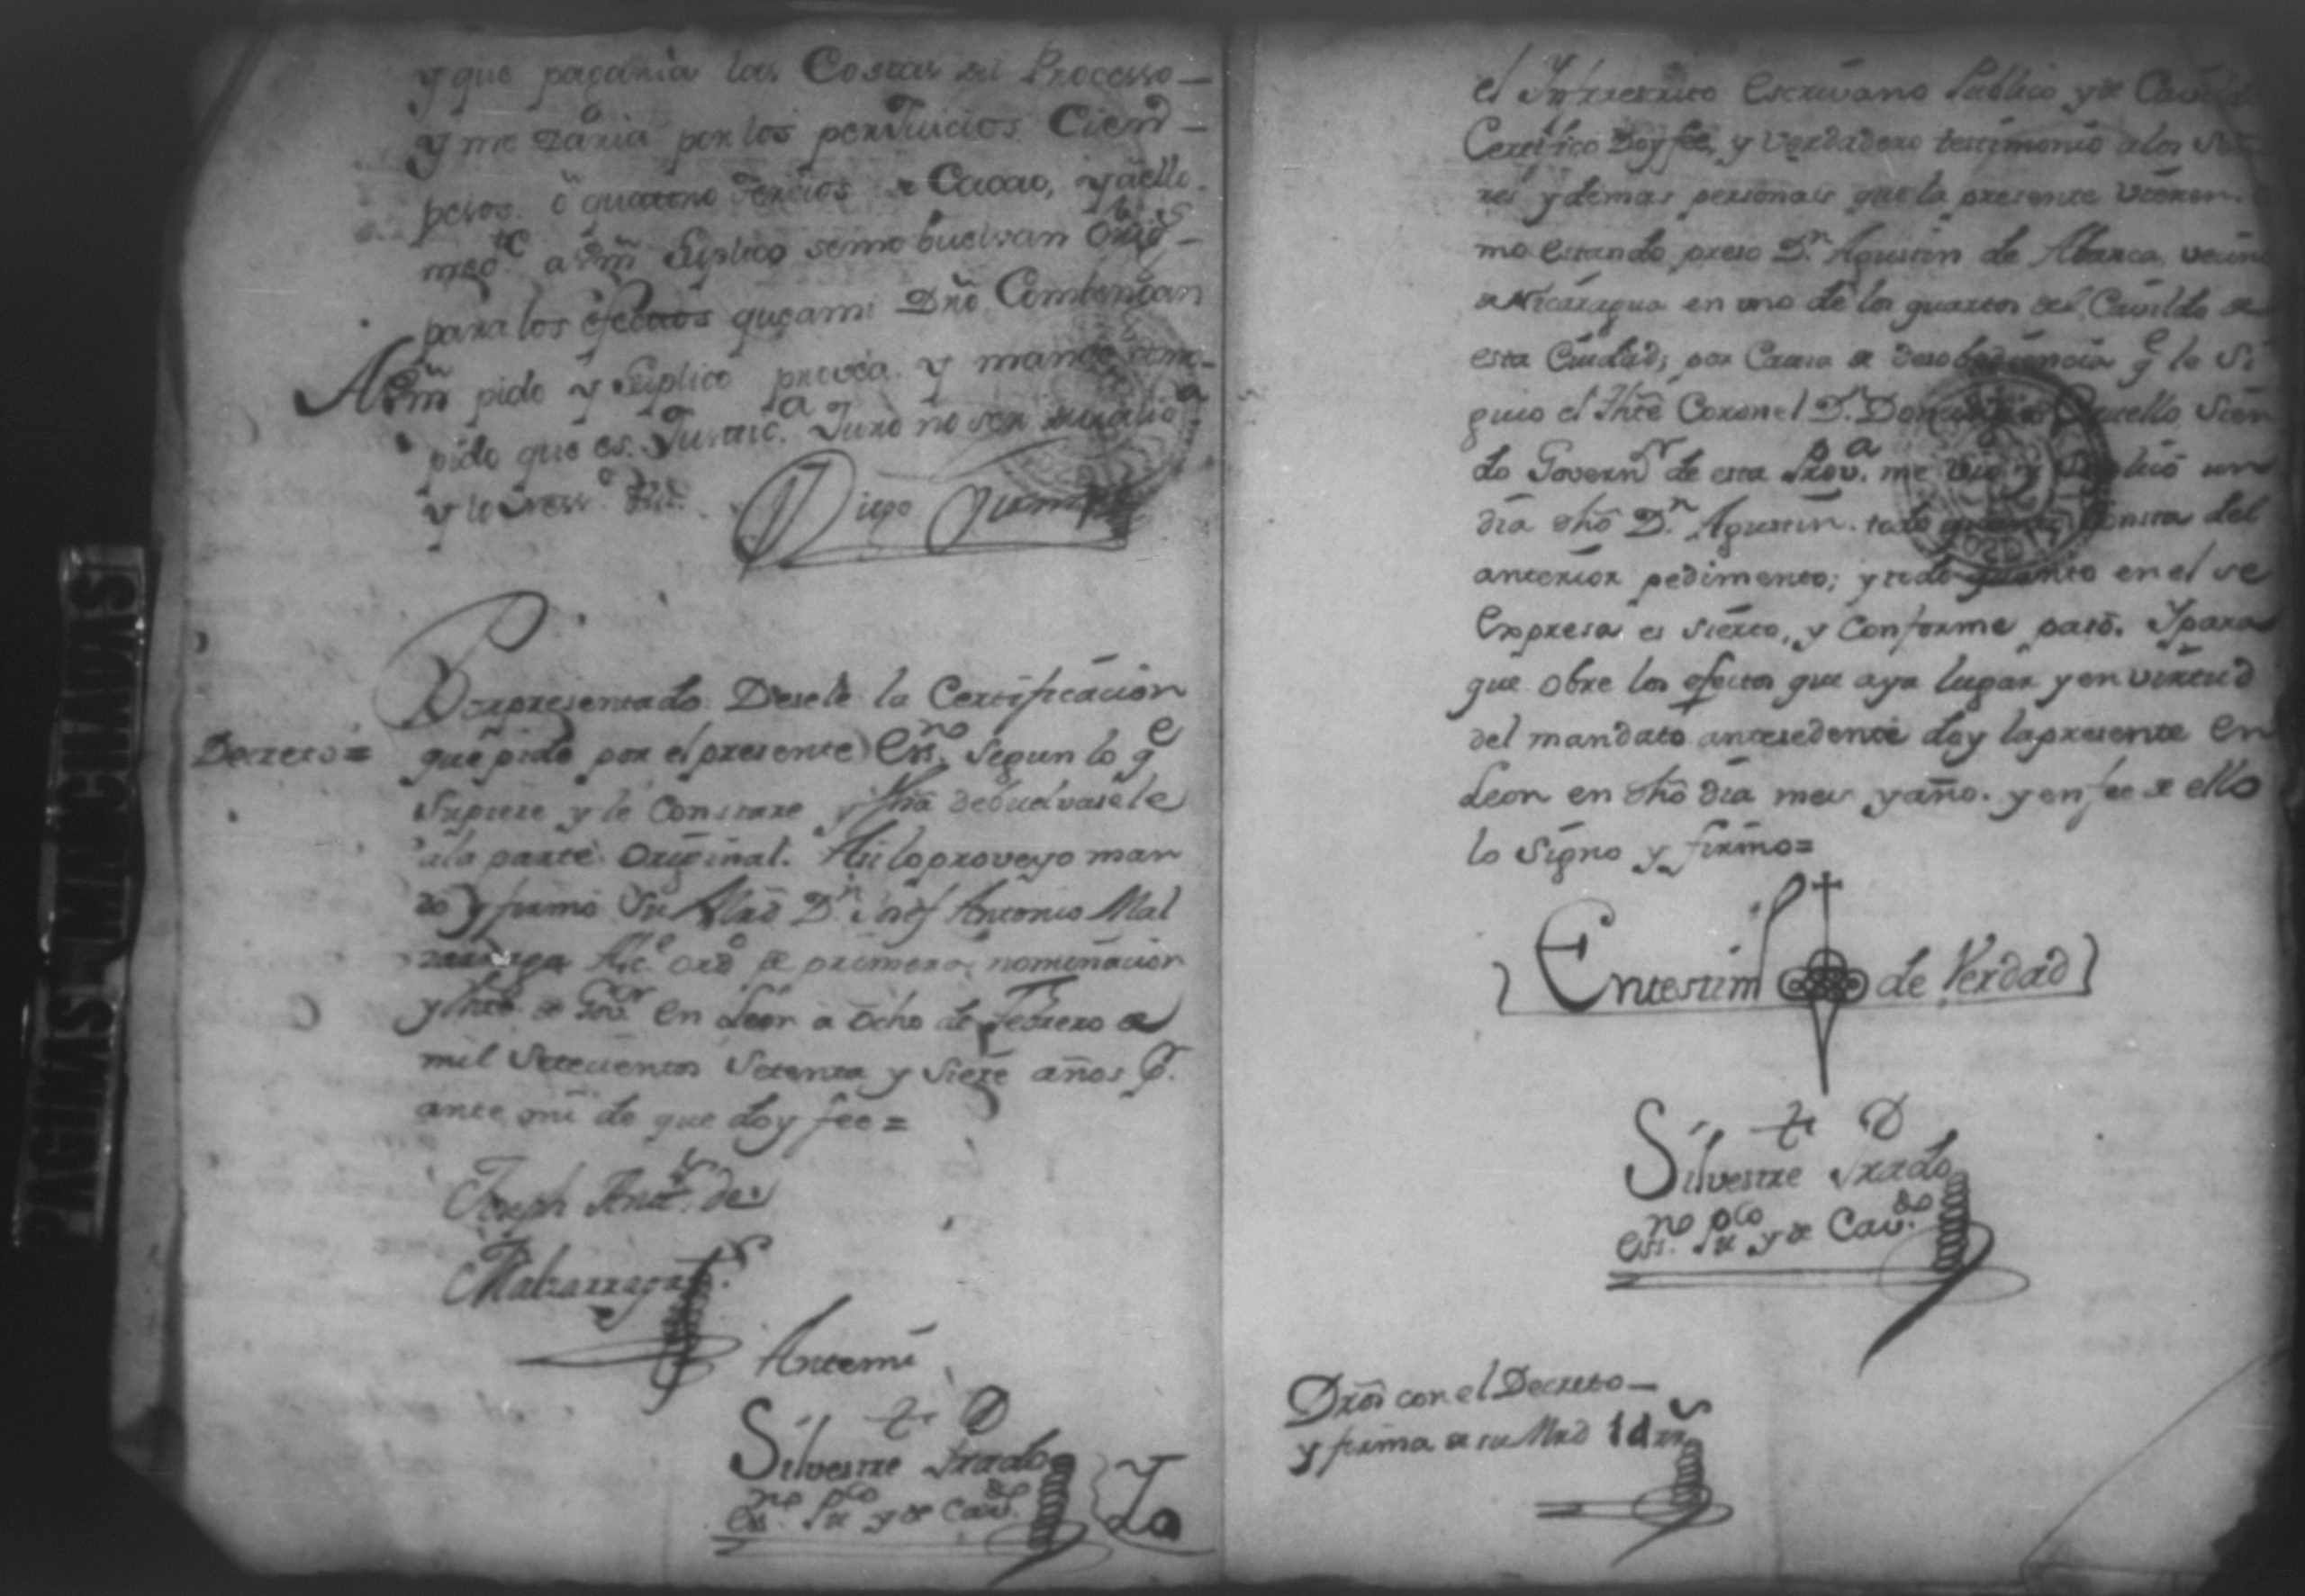 y que pagaria las Costas del Processo—
y me daria por los perJuicios Cien
pesos. ô quatro Tercios de Cacao, y aello
a Vm Suplico seme buelvan Orig.s
para los efectos que ami Dño. Combengan
A Vm pido y Suplico provea y mande como
pido que es. Justic.a Juro no ser malicio.a
y lo Ness.o &a.
Diego
Porpresentado. Desele la Certificacion
Decreto= que pide por el presente Ess.no segun lo q.e
Supiere y le Constare y fha debuelvasele
ala parte Original. Asi lo proveyo man
do y firmô Su Mrd D.n Josef Antonio Mal
zarraga Alc.e ord.o de primera nominacion
y Thte. de Gov.or en Leon a ocho de Febrero de
mil Setecientos Setenta y Siete años
ante mi de que doy fee=
Joseph Ant.o de
Malzarraga
Antemi
Silvestre Prado
Ess.no Pu.co y de Cav.do
Yo
el Infraescrito Escrivano Publico y de Cavildo
Certifico Doy fee, y Verdadero testimonio alos Señ
res y demas personas que la presente Vieren. Co
mo estando preso D.n Agustin de Abarca vecino
de Nicaragua en uno de los quartos del Cavildo de
esta Ciudad; por Causa de desobediencia q.e le Si
guio el Thte Coronel D.n Domingo Cavello Sien
do Govern.r de esta Prov.a me dijo y un
dia dho D.n Agustin. todo quanto Consta del
anterior pedimento; y todo quanto en el se
Expresa es Sierto, y Conforme pasô. Ypara
que Obre los efectos que aya lugar y en virtud
del mandato antesedente doy lapresente en
Leon en dho dia mes y año. y en fee de ello
lo Signo y firmo=
Entestim.o de Verdad
Silvestre Prado
Ess.no Pu.co y de Cav.do
Dros con el Decreto—
y firma de su Mrd
PAGINAS MANCHADAS